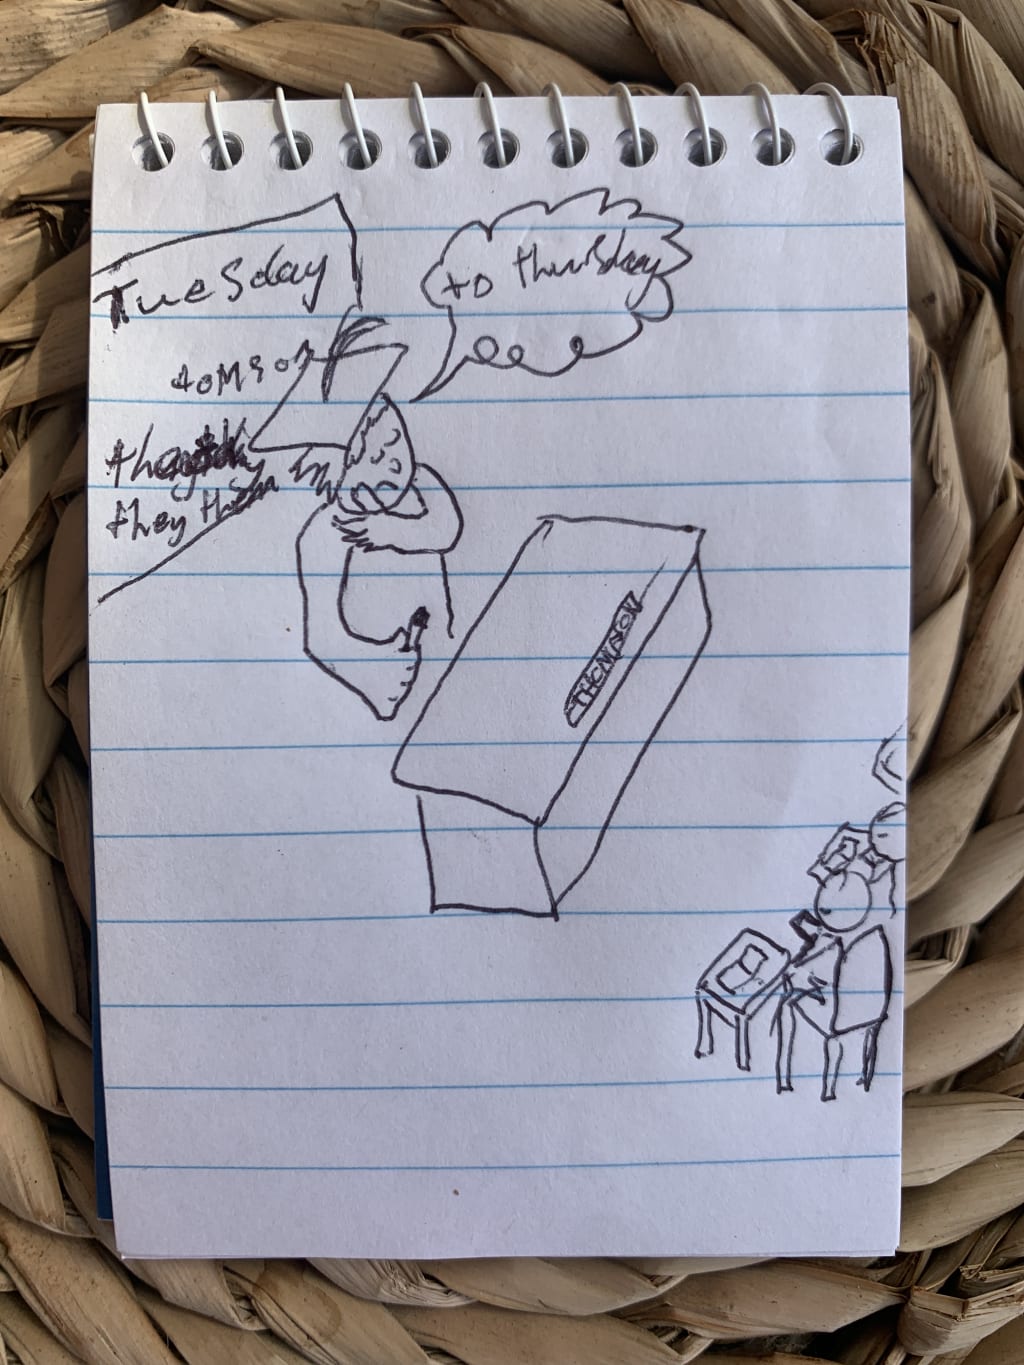 Tuesday
to thursday
tomson
they them
THOMASON